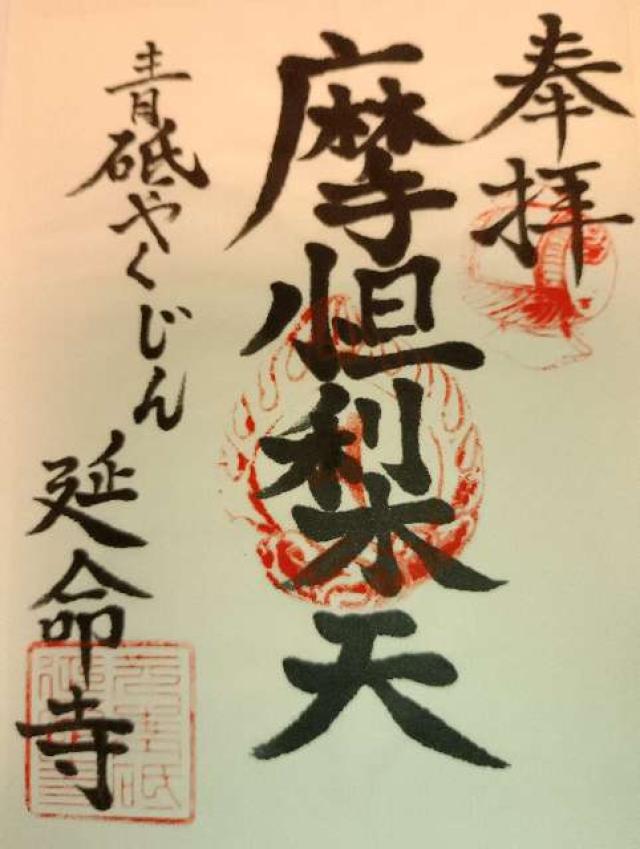 奉拝
摩怛利木天
青砥やくじん
延命寺